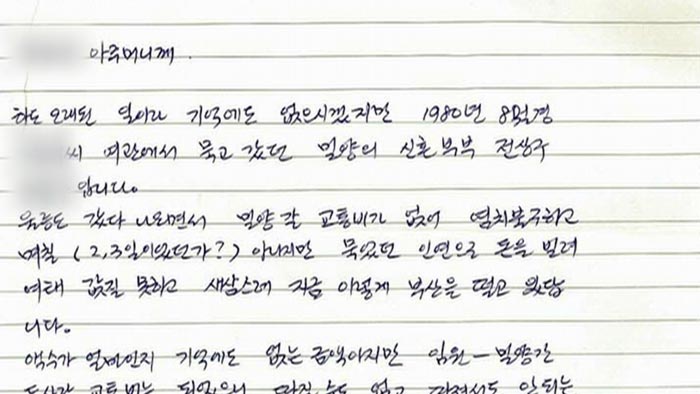 아주머니께.
하도 오래된 일이라 기억에도 없으시겠지만 1980년 8월경
씨 여관에서 묵고 갔던 밀양의 신혼부부 전상구
입니다.
울릉도 갔다 나오면서 밀양 갈 교통비가 없어 염치불구하고
며칠 (2,3일이었던가?) 아니지만 묵었던 인연으로 돈을 빌려
여태 갚질 못하고 새삼스레 지금 이렇게 부산을 떨고 있답
니다.
액수가 얼마인지 기억에도 없는 금액이지만 임원-밀양간
두사람 교통비는 되었으니 따질 수도 없고 따져서도 안되는